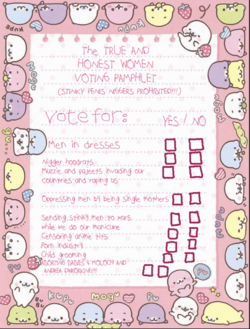 The TRUE AND
HONEST WOMEN
VOTING PAMPHLET
(STINKY PENIS NIGGERS PROHIBITED!!!)
Vote for: YES / NO
Men in dresses
Nigger hoodrays
Muzzie and pajeets invading our
countries and raping us
Oppressing men by being single mothers
Sending men to wars
while we do our manicure
Censoring anime tits
Porn industry
Child grooming
BABIES 4 MOLOCH AND
ANDREA
Mogu
Pu